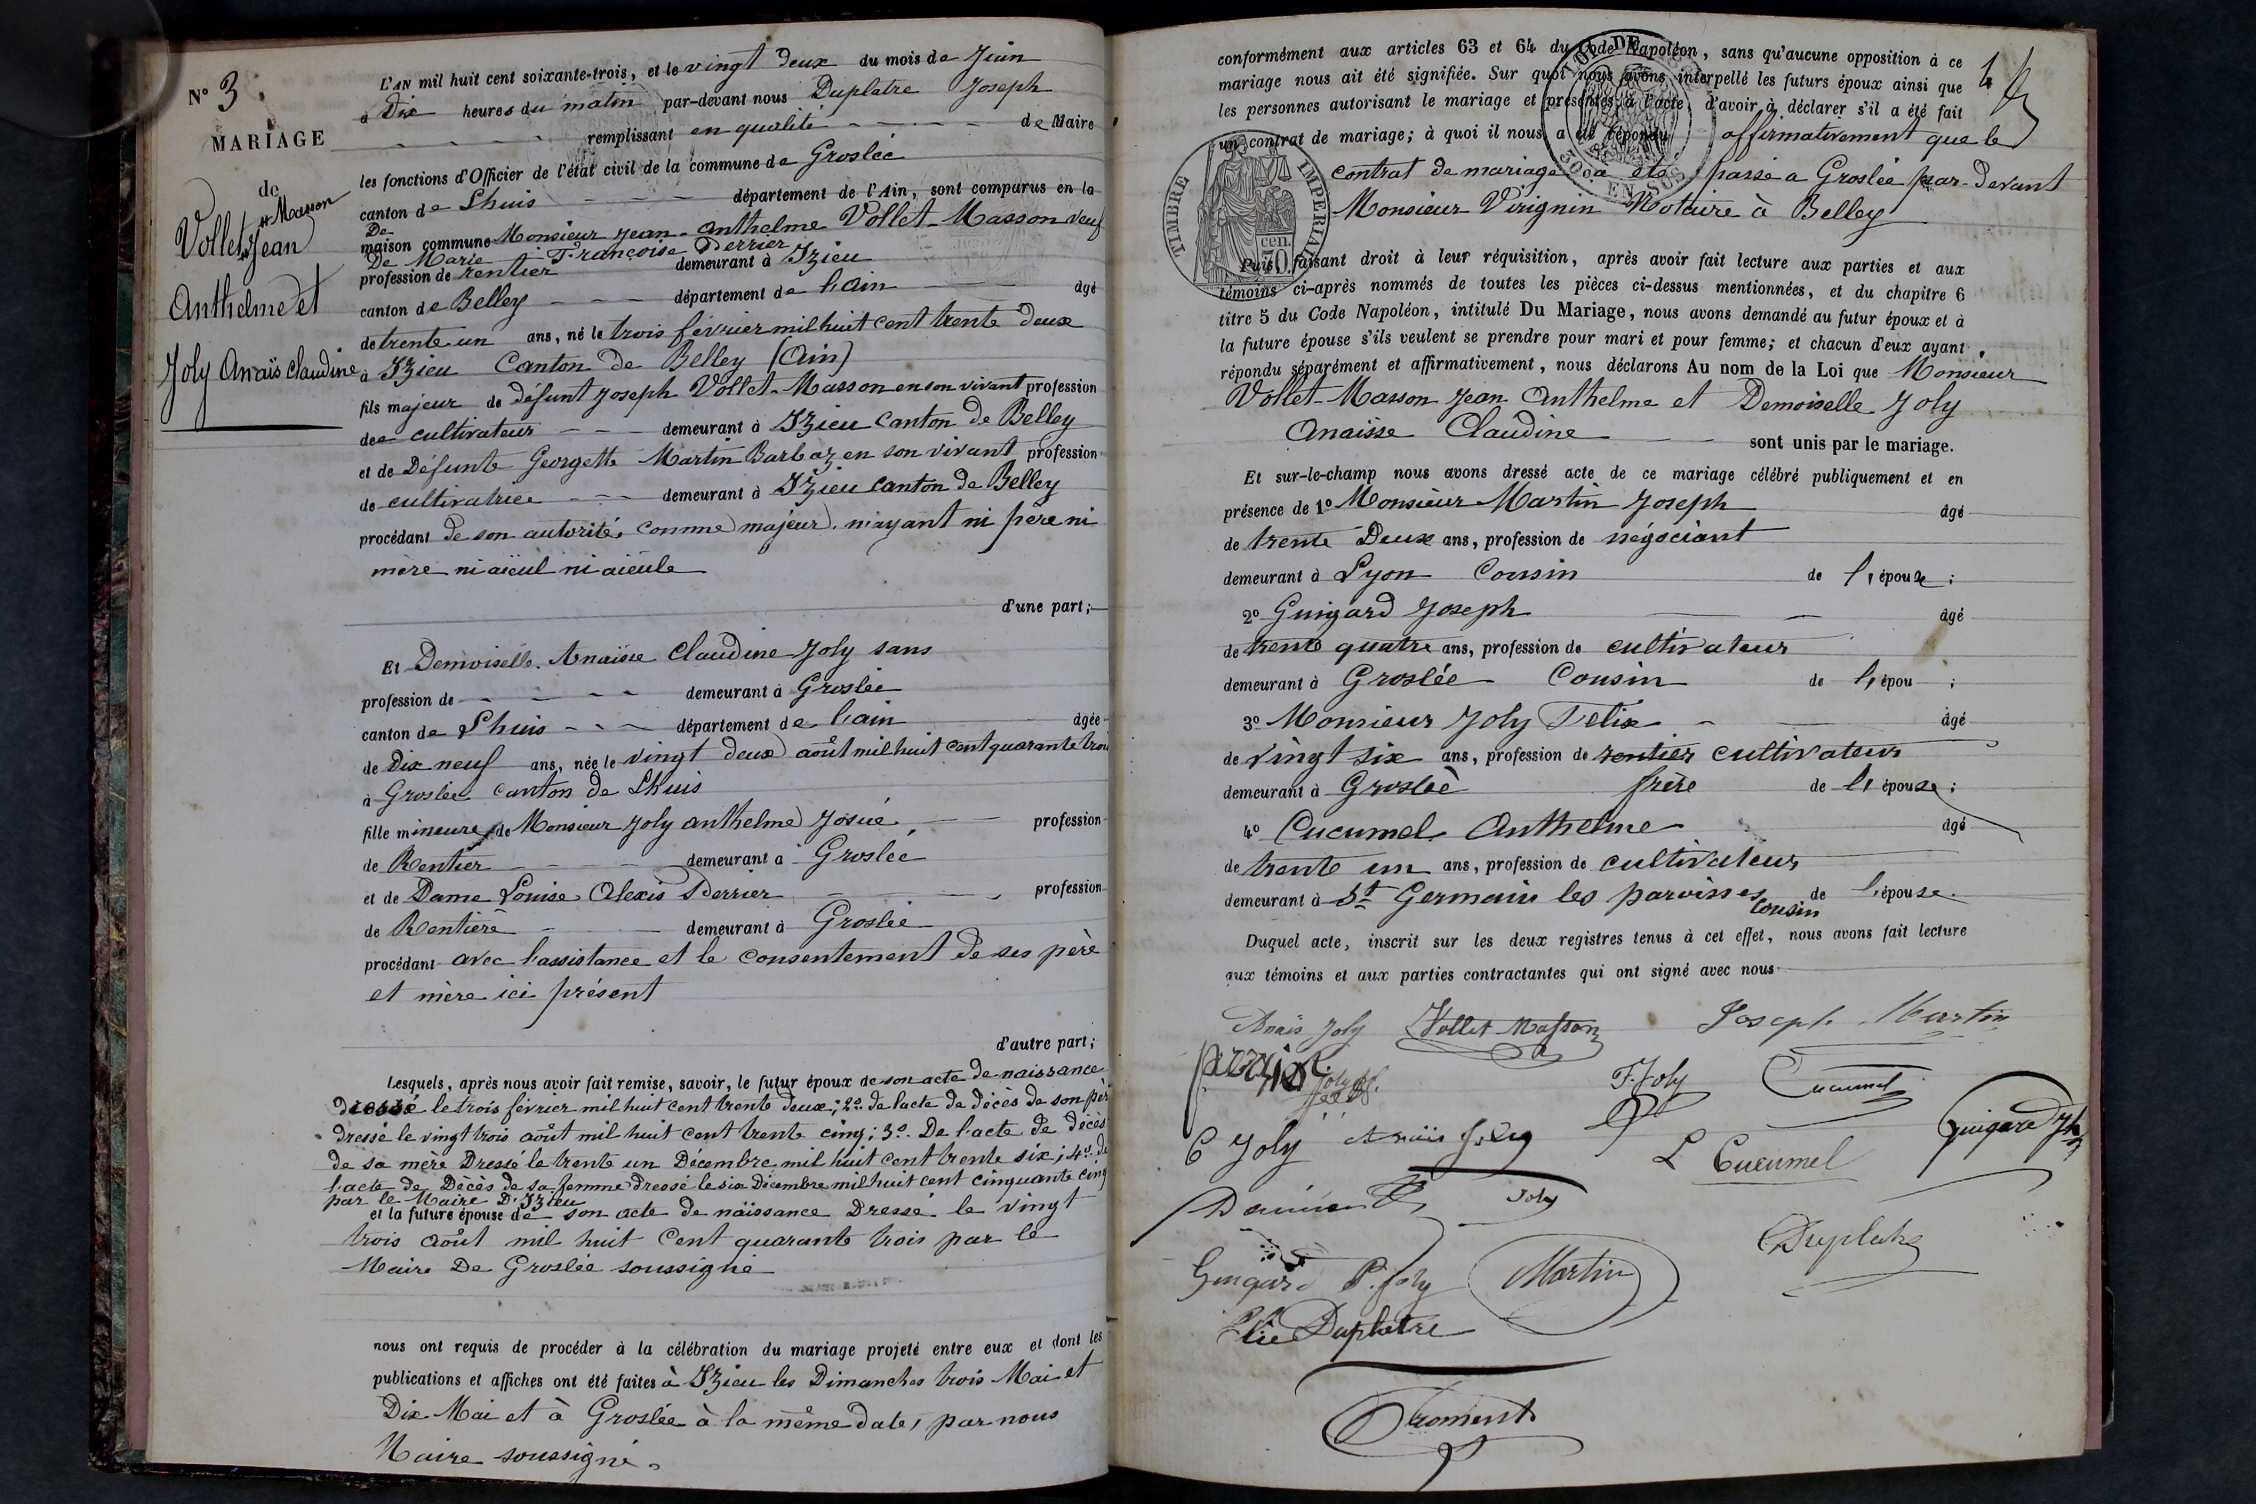 N° 3.
MARIAGE
de
Vollet-Masson
Jean
Anthelme et
Joly Anaïs Claudine
L'AN mil huit cent soixante-trois, et le vingt deux du mois de Juin
à Dix heures du matin par-devant nous Duplatre Joseph
remplissant en qualité de Maire
les fonctions d'Officier de l'état civil de la commune de Groslée
canton de Lhuis département de l'Ain, sont comparus en la
maison commune Monsieur Jean-Anthelme Vollet-Masson veuf
De Marie Françoise Perrier
profession de rentier demeurant à Izieu
canton de Belley département de l'ain âgé
de trente un ans, né le trois février mil huit cent trente deux
à Izieu Canton de Belley (Ain)
fils majeur de défunt Joseph Vollet-Masson en son vivant profession
de cultivateur demeurant à Izieu Canton de Belley
et de Défunte Georgette Martin Barbaz en son vivant profession
de cultivatrice demeurant à Izieu canton de Belley
procédant de son autorité comme majeur n'ayant ni père ni
mère ni aieul ni aieule
d'une part;
Et Demoiselle Anaïsse Claudine Joly sans
profession de demeurant à Groslée
canton de Lhuis département de l'ain âgée
de Dix neuf ans, née le vingt deux août mil huit cent quarante trois
à Groslée canton de Lhuis
fille mineure de Monsieur Joly anthelme Josué profession
de Rentier demeurant à Groslée
et de Dame Louise Alexis Perrier profession
de Rentière demeurant à Groslée
procédant avec l'assistance et le consentement de ses père
et mère ici présent
d'autre part;
Lesquels, après nous avoir fait remise, savoir, le futur époux de son acte de naissance
dressé le trois février mil huit cent trente deux; 2° de l'acte de décès de son père
dressé le vingt trois août mil huit cent trente cinq; 3° De l'acte de décès
de sa mère Dressé le trente un Décembre mil huit cent trente six; 4° de
l'acte de Décès de sa femme dressé le six Décembre mil huit cent cinquante cinq
par le Maire D'Izieu
et la future épouse de son acte de naissance Dressé le vingt
trois août mil huit Cent quarante trois par le
Maire De Groslée soussigné
nous ont requis de procéder à la célébration du mariage projeté entre eux et dont les
publications et affiches ont été faites à Izieu les Dimanches trois Mai et
Dix Mai et à Groslée à la même date, par nous
Maire soussigné.
TIMBRE IMPERIAL
70 cen.
EN SUS
conformément aux articles 63 et 64 du Code Napoléon, sans qu'aucune opposition à ce
mariage nous ait été signifiée. Sur quoi nous avons interpellé les futurs époux ainsi que
les personnes autorisant le mariage et présentes à l'acte, d'avoir à déclarer s'il a été fait
un contrat de mariage; à quoi il nous a été répondu affirmativement que le
contrat de mariage a été passé a Groslée par-devant
Monsieur Virignin Notaire à Belley
Puis, faisant droit à leur réquisition, après avoir fait lecture aux parties et aux
témoins ci-après nommés de toutes les pièces ci-dessus mentionnées, et du chapitre 6
titre 5 du Code Napoléon, intitulé Du Mariage, nous avons demandé au futur époux et à
la future épouse s'ils veulent se prendre pour mari et pour femme; et chacun d'eux ayant
répondu séparément et affirmativement, nous déclarons Au nom de la Loi que Monsieur
Vollet-Masson Jean Anthelme et Demoiselle Joly
Anaisse Claudine sont unis par le mariage.
Et sur-le-champ nous avons dressé acte de ce mariage célébré publiquement et en
présence de 1° Monsieur Martin Joseph âgé
de trente Deux ans, profession de négociant
demeurant à Lyon Cousin de l'épouse;
2° Guigard Joseph âgé
de trente quatre ans, profession de cultivateur
demeurant à Groslée Cousin de l'épou ;
3° Monsieur Joly Felix âgé
de vingt six ans, profession de rentier cultivateur
demeurant à Groslée frère de l'épouse;
4° Cucumel Anthelme âgé
de trente un ans, profession de cultivateur
demeurant à St Germain les paroisses cousin de l'épouse.
Duquel acte, inscrit sur les deux registres tenus à cet effet, nous avons fait lecture
aux témoins et aux parties contractantes qui ont signé avec nous
Anaïs Joly Vollet-Masson Joseph Martin
F. Joly Cucumel
C Joly Anaïs Joly L Cucumel Guigard
Joly
Duplatre
Guigard P. Joly Martin
Elie Duplatre
Froment